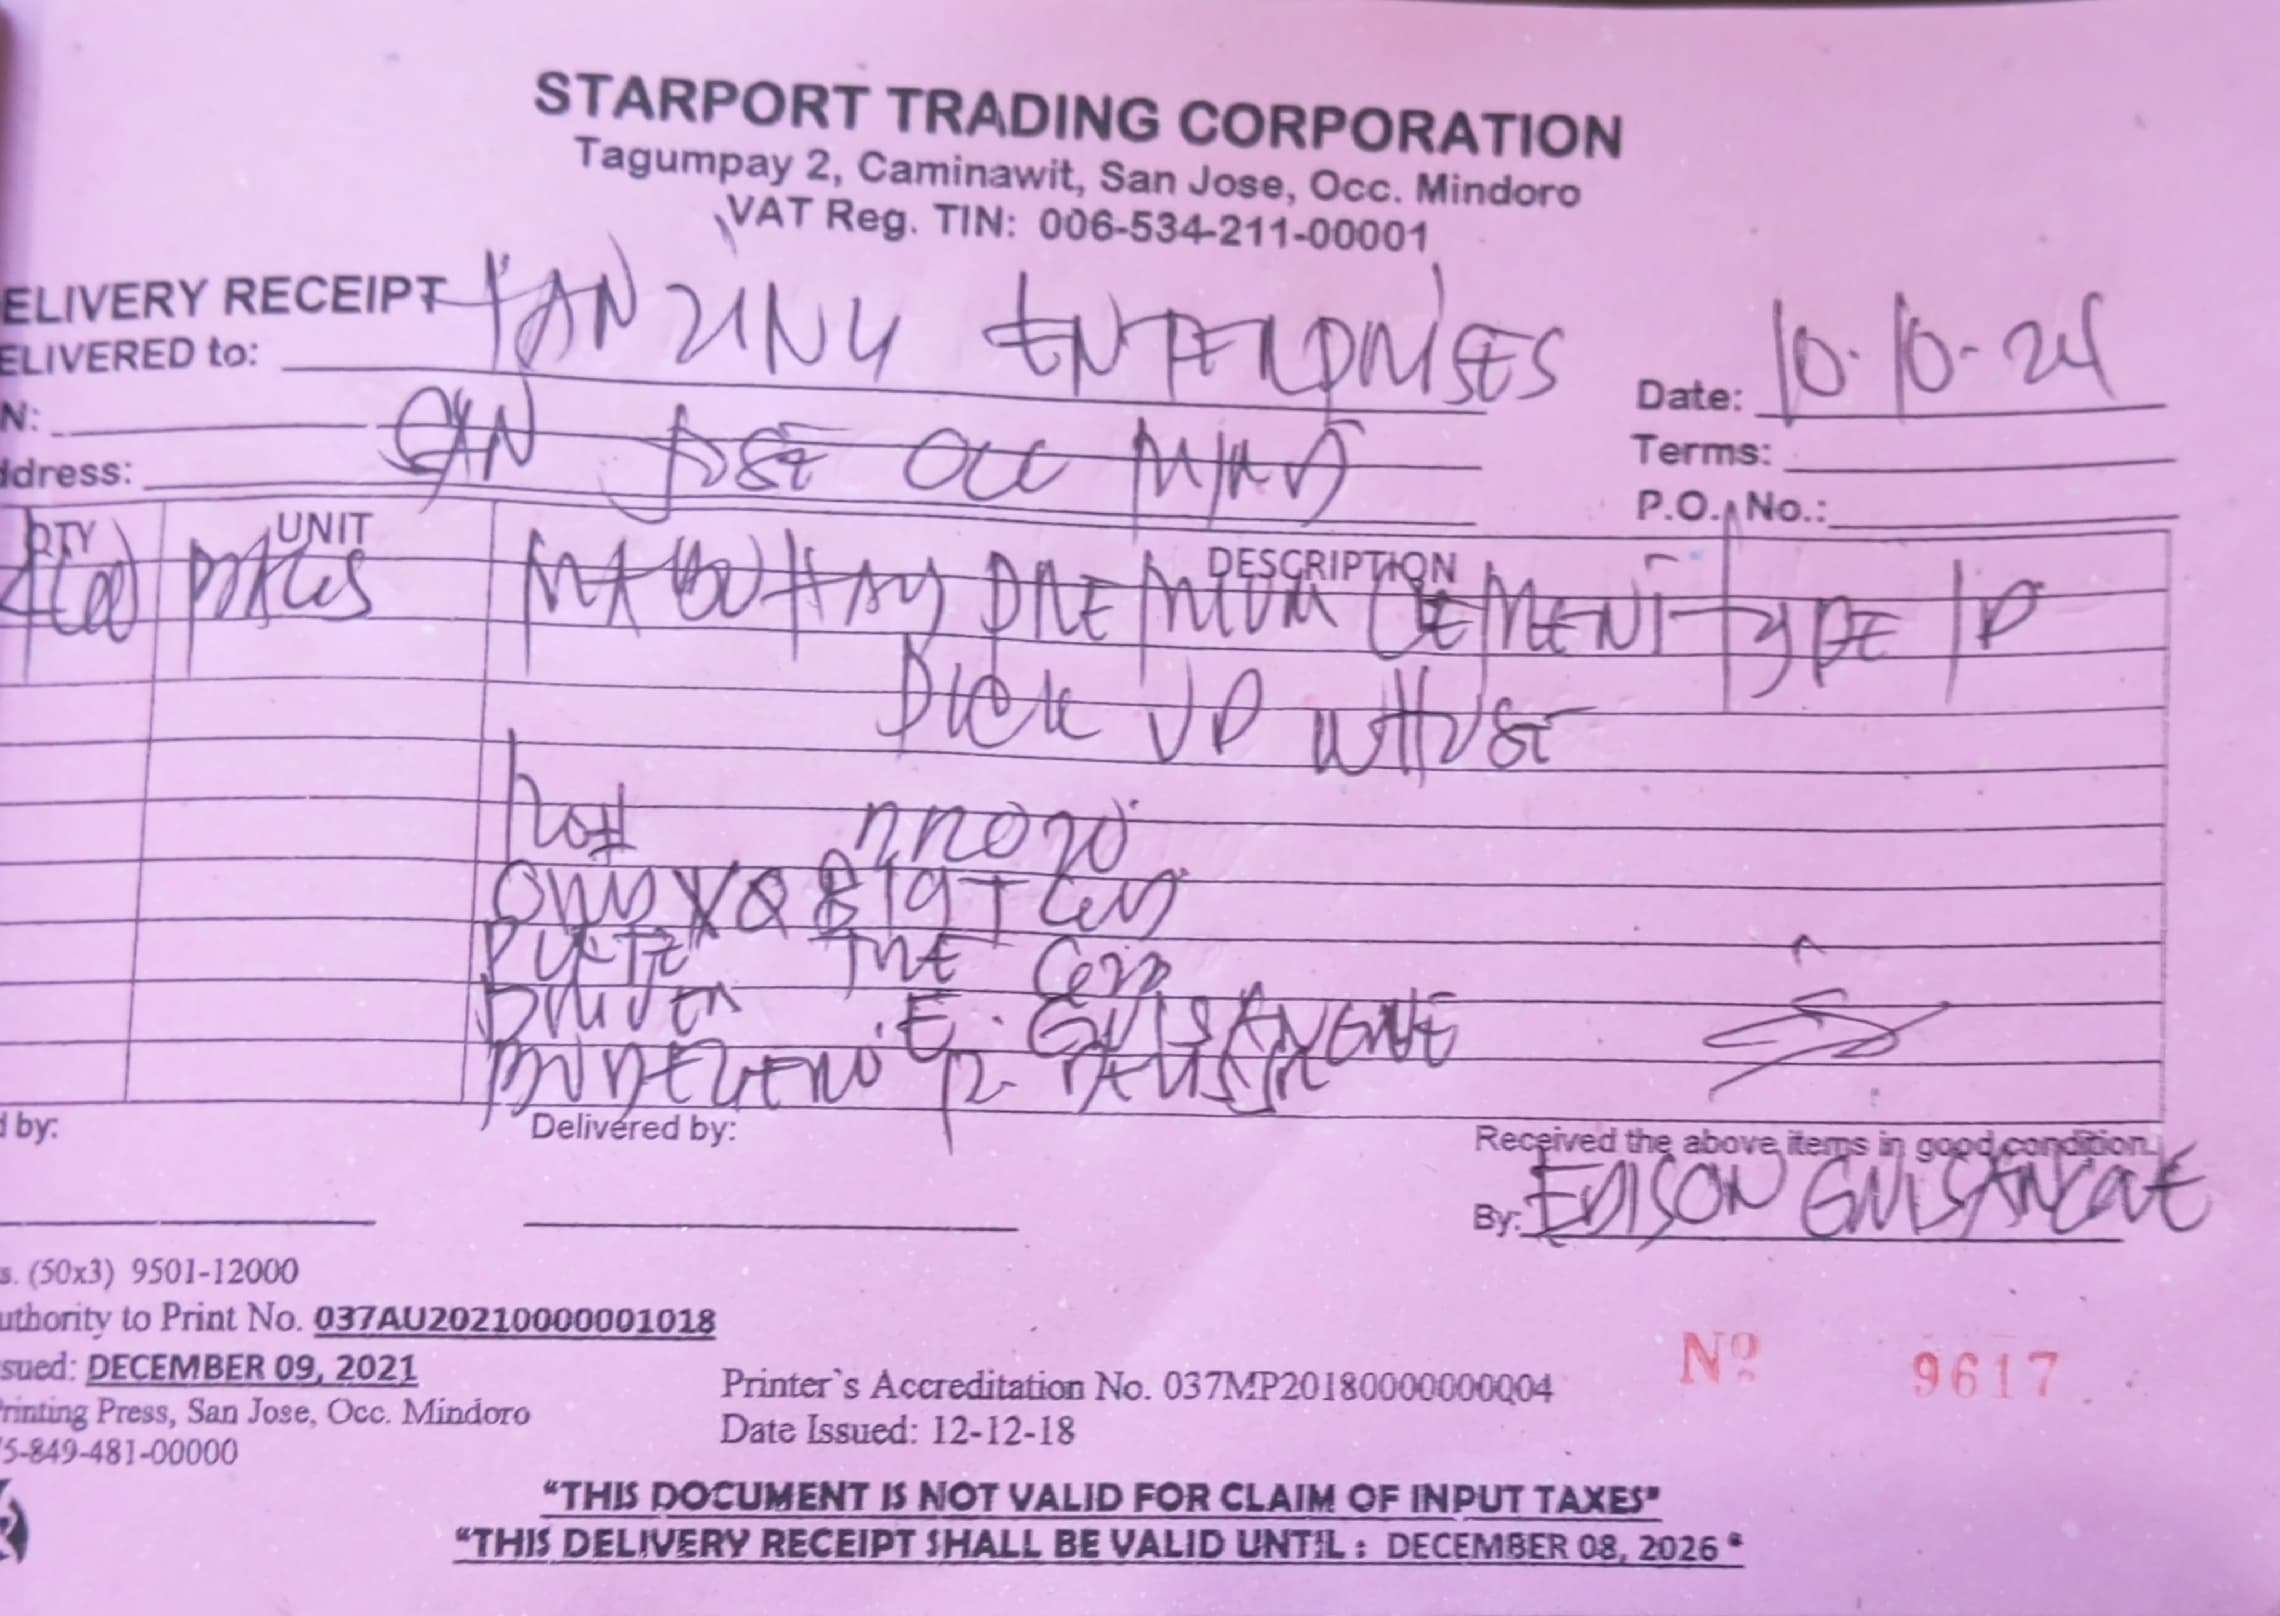 STARPORT TRADING CORPORATION
Tagumpay 2, Caminawit, San Jose, Occ. Mindoro
VAT Reg. TIN: 006-534-211-00001
ELIVERY RECEIPT
ELIVERED to: YANZING ENTERPRISES Date: 10-10-24
N: Terms:
ddress: SAN JOSE OCC MIND P.O. No.:
QTY UNIT DESCRIPTION
400 MABUHAY PREMIUM CEMENT TYPE 1P
PICK UP WHSE
PLATE
DRIVER E. GUISANGUE
d by: Delivered by: Received the above items in good condition.
By: EDISON
s. (50x3) 9501-12000
uthority to Print No. 037AU20210000001018
sued: DECEMBER 09, 2021
rinting Press, San Jose, Occ. Mindoro
5-849-481-00000
Printer`s Accreditation No. 037MP20180000000004
Date Issued: 12-12-18
Nº 9617
"THIS DOCUMENT IS NOT VALID FOR CLAIM OF INPUT TAXES"
"THIS DELIVERY RECEIPT SHALL BE VALID UNTIL : DECEMBER 08, 2026 "